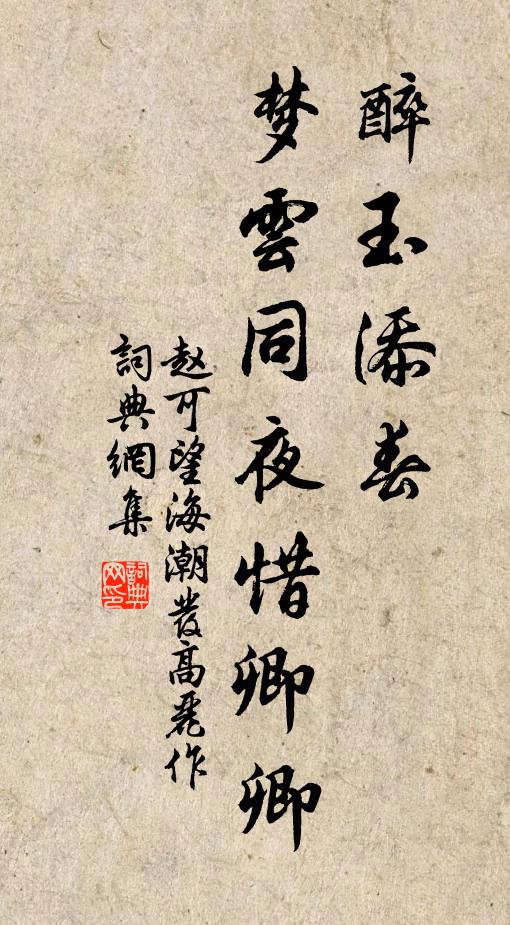 醉玉添春
梦雲同夜惜卿卿
赵可望海潮發高麗作
詞典網集
詞典網印